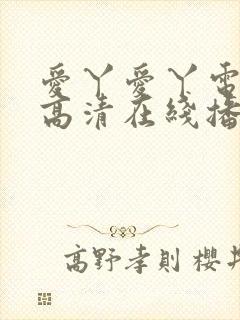 愛丫愛丫電
高清在綫播
高野孝則 櫻井